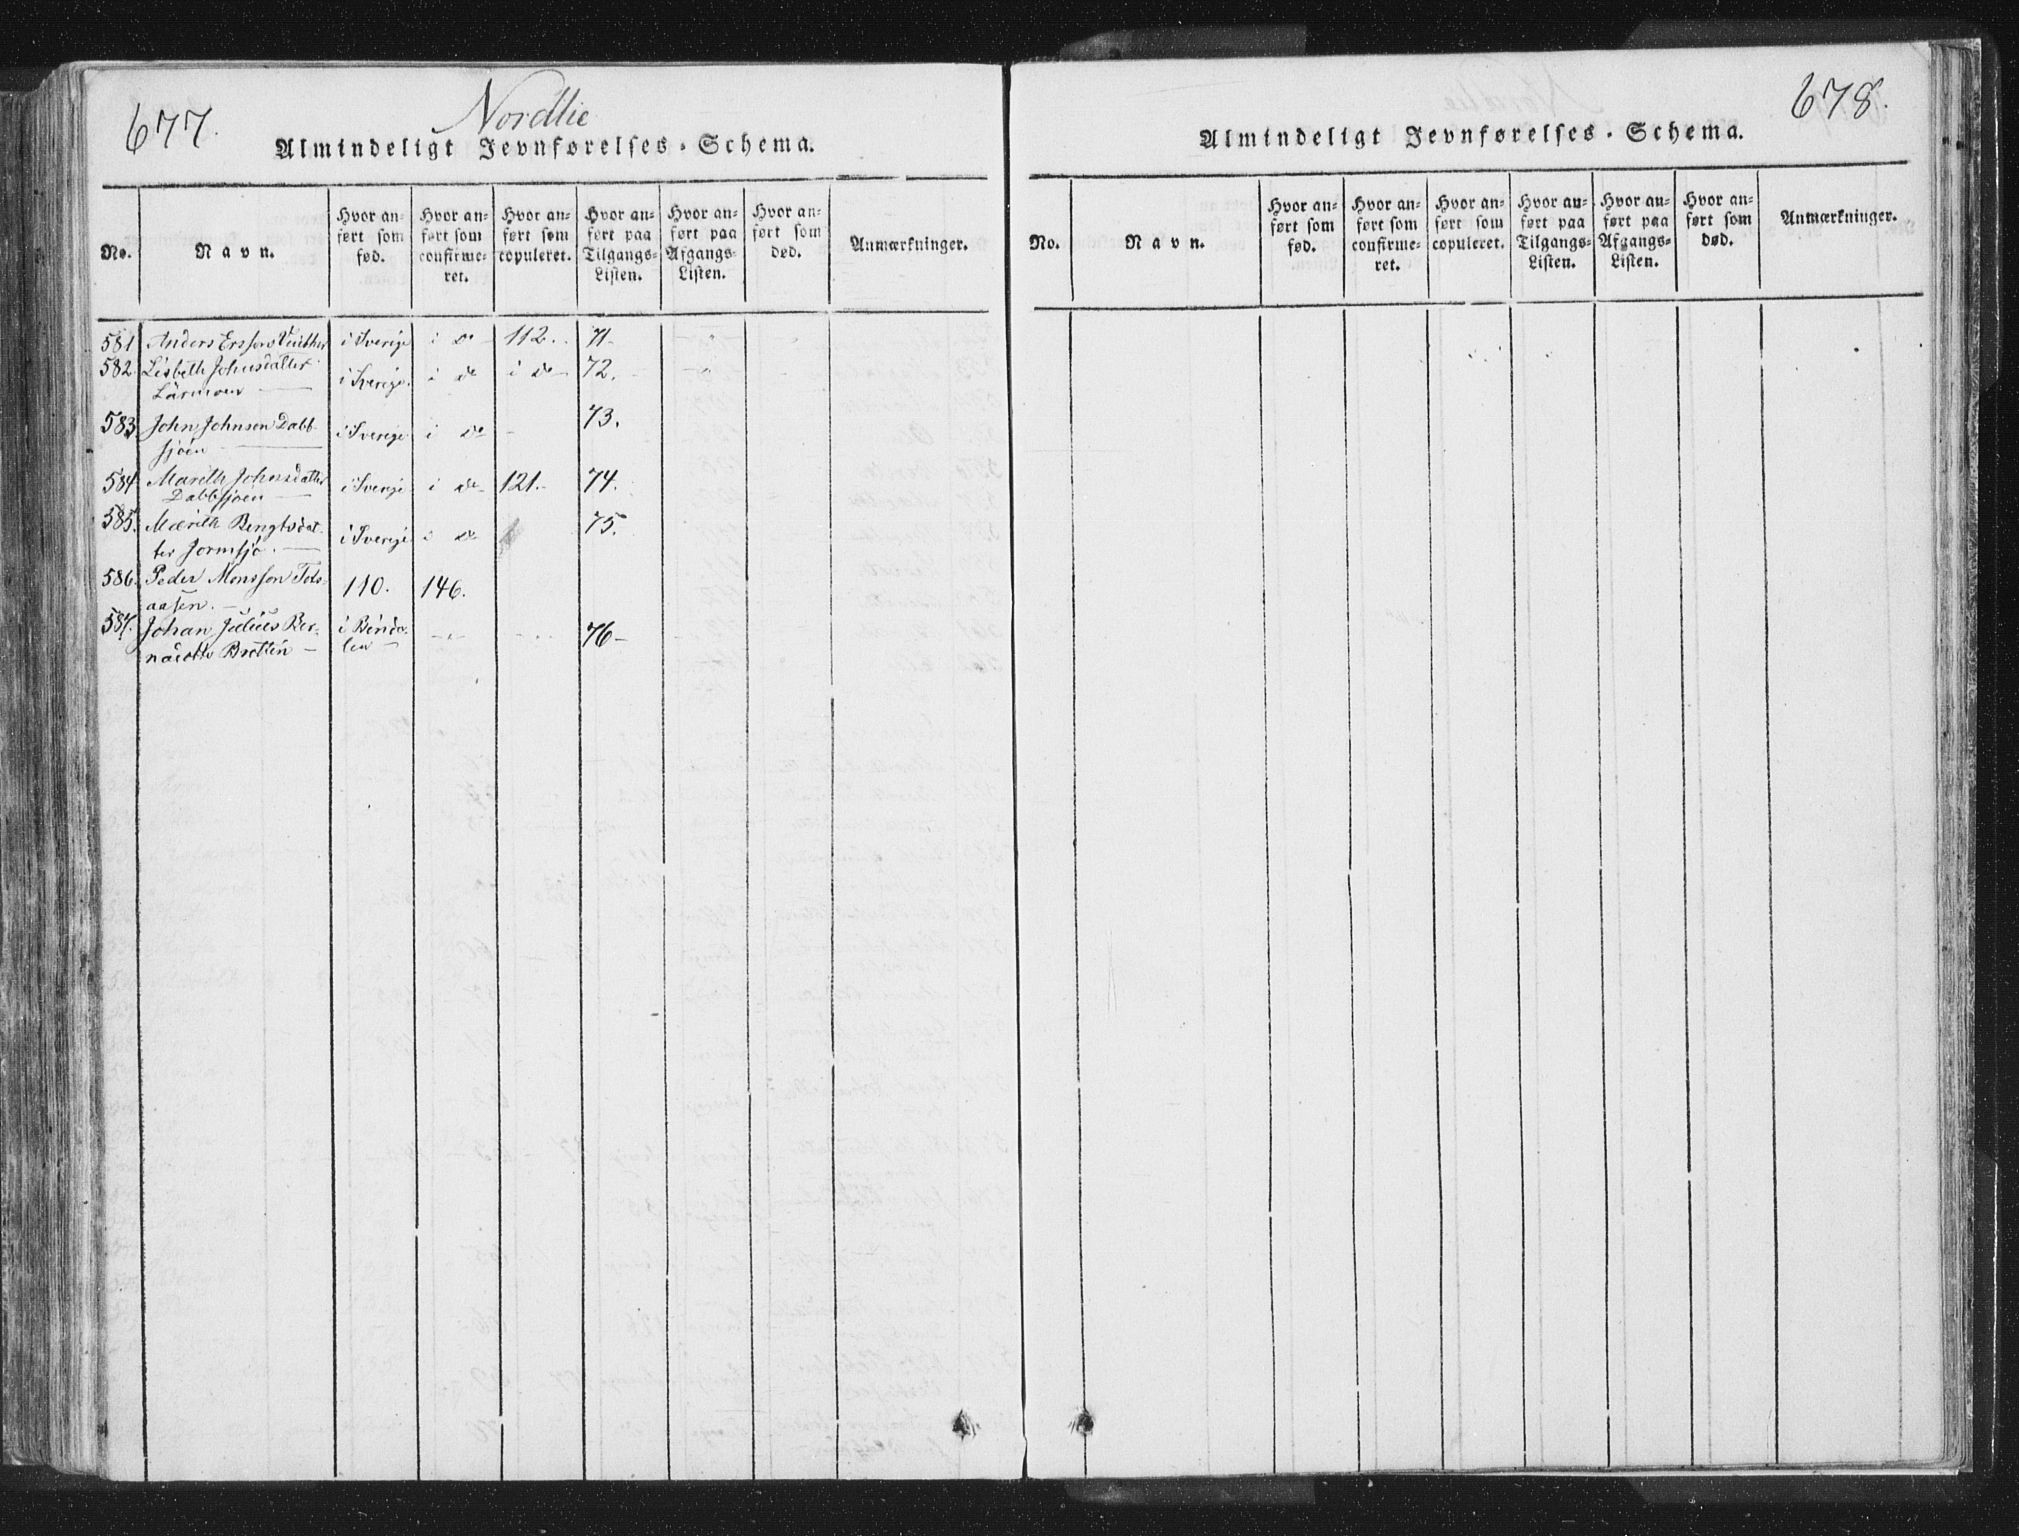 677.
Nordlie
Almindeligt Jevnførelses-Schema.
No. Navn. Hvor anført som fød. Hvor anført som confirmeret. Hvor anført som copuleret. Hvor anført paa Tilgangs-Listen. Hvor anført paa Afgangs-Listen. Hvor anført som død. Anmærkninger.
581 Anders Ersson i Sverige i do 112. 71.
582 Lisbeth Johnsdatter
i Sverige. i do i do 72.
583 John Johnsen Dabb-
sjöen i Sverige i do 73.
584 Mareth Johnsdatter
Dabbsjoen i Sverige i do 121. 74.
585. Mareth Bengtsdat-
ter Jormsjö. i Sverige i do 75.
586. Peder Monsson Tots-
aasen. 110. 146.
587. Johan Julius Ber-
nadotte Bratlien i Binda-
len 76
678.
Almindeligt Jevnførelses-Schema.
No. Navn. Hvor anført som fød. Hvor anført som confirmeret. Hvor anført som copuleret. Hvor anført paa Tilgangs-Listen. Hvor anført paa Afgangs-Listen. Hvor anført som død. Anmærkninger.